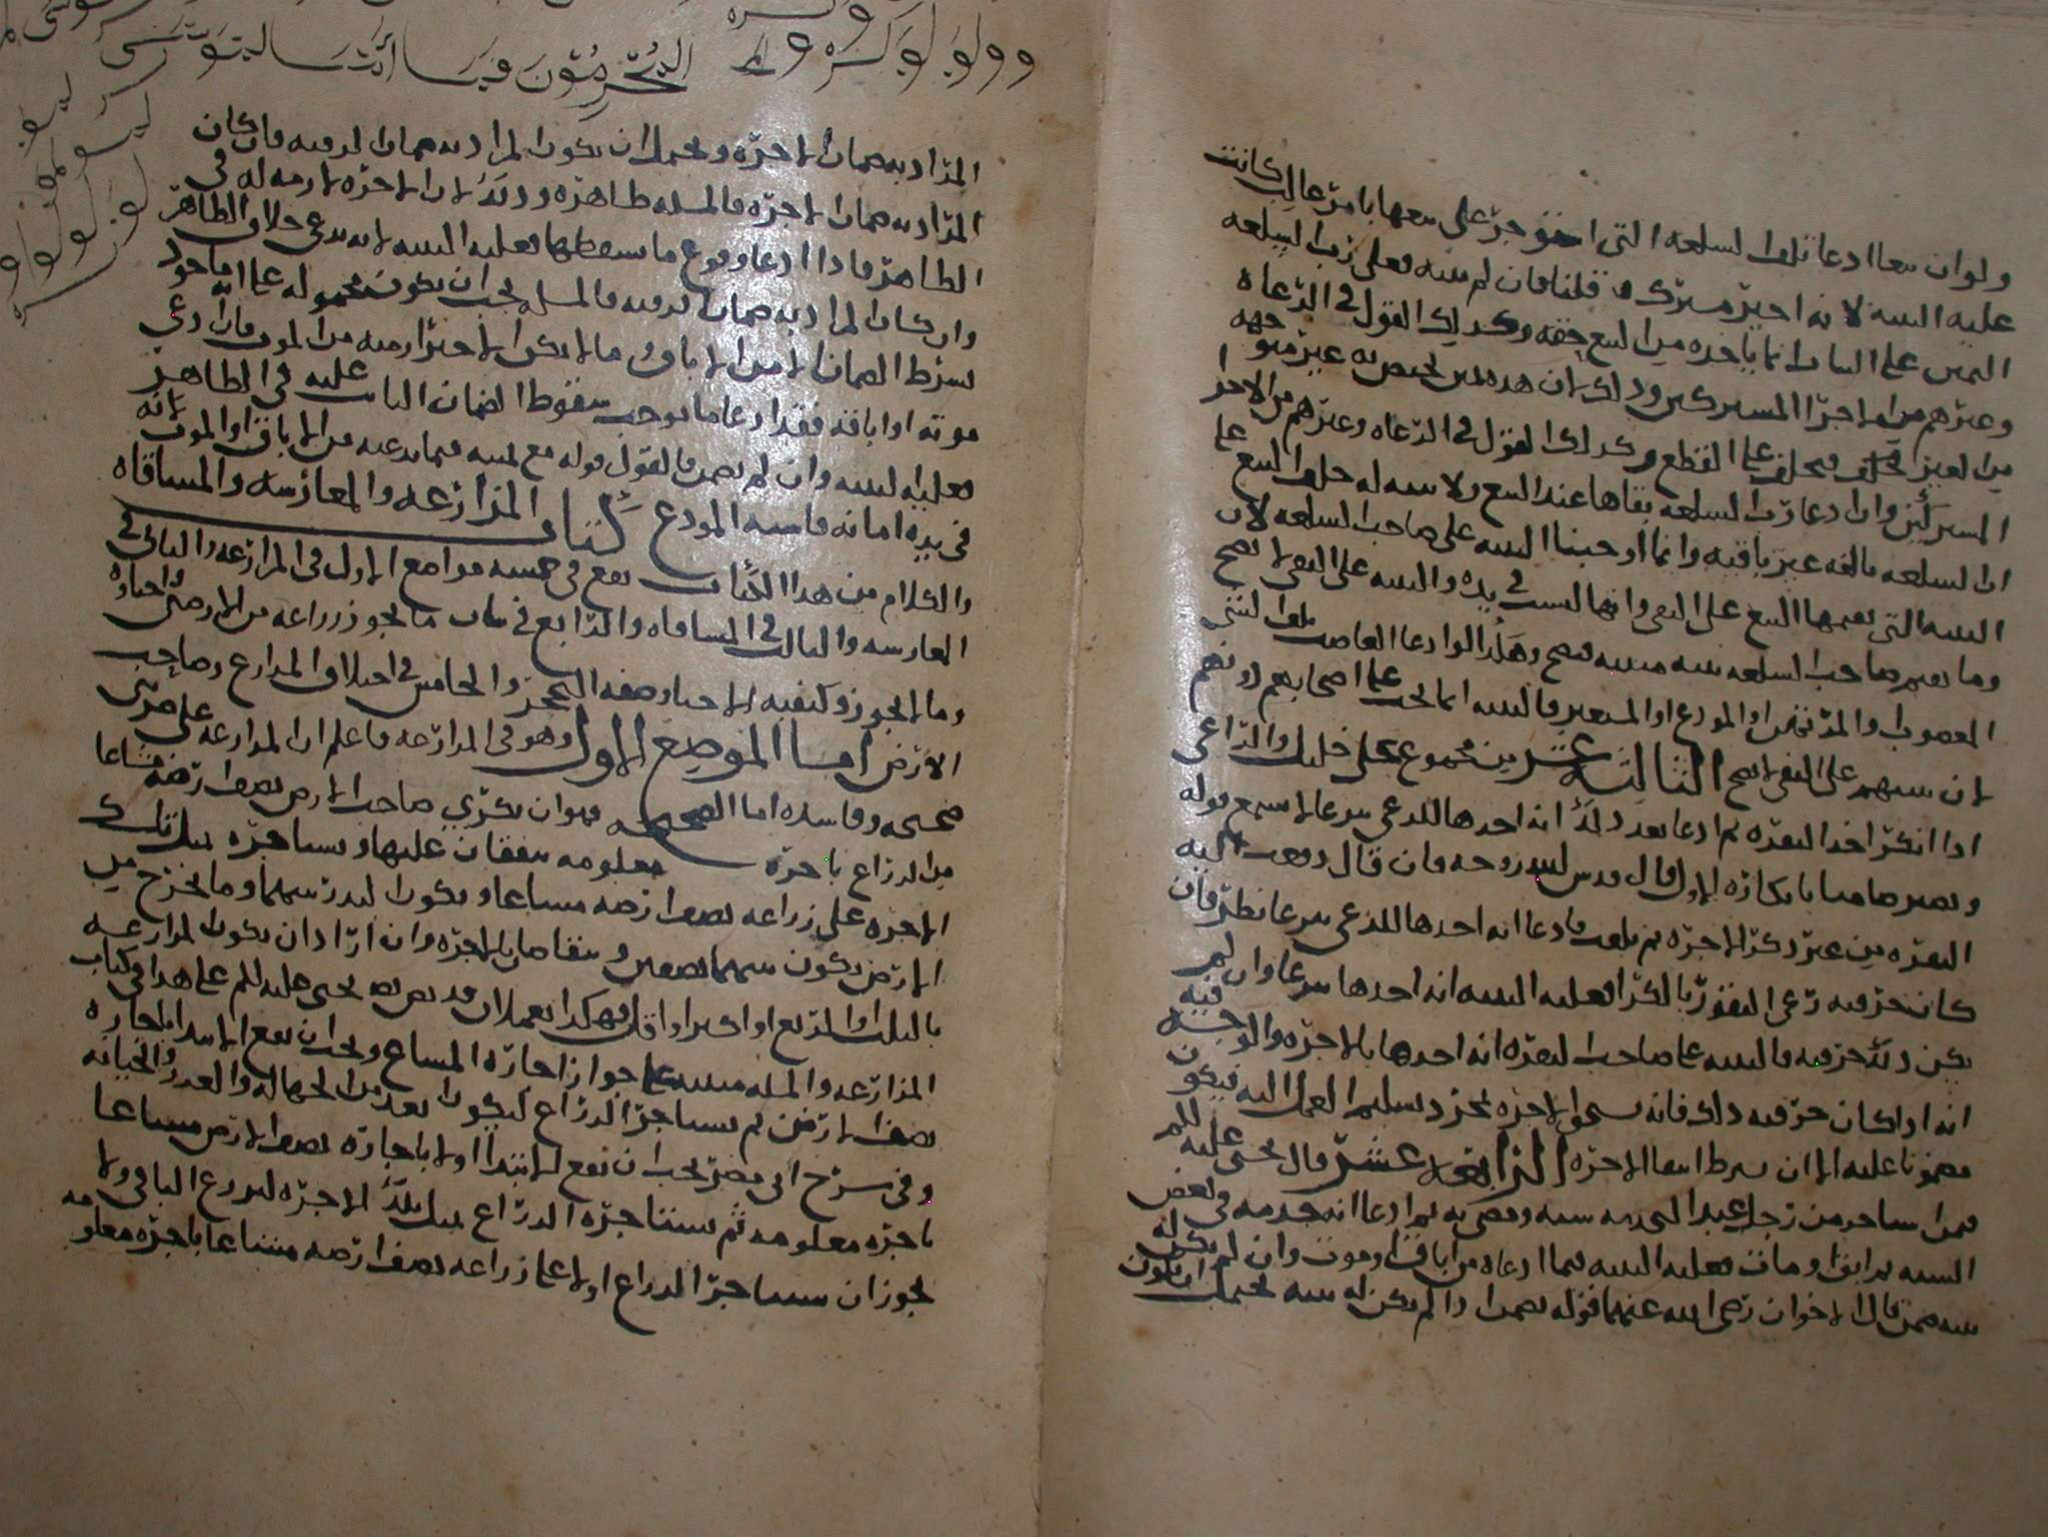 ولو ان بيعا ادعا تلف السلعه التي استوجر على بيعها بامر غالب كانت
عليه البينه لانه اجير مشترك قلنا فان لم بينه فعلى رب السلعه
اليمين على البتات انما ياخذه من البيع حقه وكذلك القول في الرعاه
وغيرهم من الاجرا المشتركين وذلك لان هذه اليمين تختص به غير متوجهه
من الغير فيحلف على القطع وكذلك القول في الرعاه وغيرهم من الاجرا
المشتركين وان ادعا رب السلعه بقاها عند البيع ولا بينه له حلف البيع على
ان السلعه تالفه غير باقيه وانما اوجبنا البينه على صاحب السلعه لان
البينه التي يقيمها البيع على النفي وانها ليست في يده والبينه على النفي لا تصح
وما يقيم صاحب السلعه بينه مثبته فتصح وهكذا لو ادعا الغاصب تلف الشي
المغصوب والمرتهن او المودع او المستعير فالبينه انما تجب على اصحابهم دونهم
لان بينتهم على النفي لا تصح الثالثه عشر من مجموع علي خليل والراعي
اذا انكر اخذ البقره ثم ادعا بعد ذلك انه اخذها للرعي سرعا لا يسمع قوله
ويصير ضامنا بانكاره الاول قال قدس الله روحه فان قال دفعت اليه
البقره من غير ذكر الاجره ثم تلفت فادعا انه اخذها للرعي سرعا نظر فان
كان حرفته رعي البقور بالكرا فعليه البينه انه اخذها سرعا وان لم
يكن ذلك حرفته فالبينه على صاحب البقره انه اخذها بالاجره والوجه فيه
انه اذا كان حرفته ذلك فانه يستحق الاجره بمجرد تسليم العمل اليه فيكون
مضمونا عليه الا ان يشرط اسقا الاجره الرابعه عشر قال يحيى عليه السلم
فمن استاجر من رجل عبدا لخدمه سنه ومضى به ثم ادعا انه خدمه في بعض
السنه ثم ابق او مات فعليه البينه فيما ادعاه من اباق او موت وان لم يكن له
بينه ضمن قال الاخوان رضي الله عنهما قوله يضمن اذا لم يكن له بينه يحتمل ان يكون
المراد به ضمان الاجره ويحتمل ان يكون المراد به ضمان الرقبه فان كان
المراد به ضمان الاجره فالمسله ظاهره وذلك لان الاجره لازمه له في
الظاهر فاذا ادعا وقوع ما يسقطها فعليه البينه لانه يدعي خلاف الظاهر
وان كان المراد به ضمان الرقبه فالمسله يجب ان يكون محموله على انه ماخوذ
بشرط الضمان لا من الاباق وما لا يمكن الاحتراز منه من الموت فان ادعى
موته او اباقه فقد ادعا ما يوجب سقوط الضمان الثابت عليه في الظاهر
فعليه البينه وان لم يضمن فالقول قوله مع يمينه فيما يدعيه من الاباق او الموت لانه
في يده امانه فاشبه المودع كتاب المزارعه والمغارسه والمساقاه
والكلام من هذا الكتاب يقع في خمسه مواضع الاول في المزارعه والثاني في
المغارسه والثالث في المساقاه والرابع في بيان ما يجوز زراعه من الارض واحياوه
وما لا يجوز وكيفيه الاحيا وصفه التحجر والخامس في اختلاف المزارع وصاحب
الارض اما الموضع الاول وهو في المزارعه فاعلم ان المزارعه على ضربين
صحيحه وفاسده اما الصحيحه فهو ان يكري صاحب الارض نصف ارضه مشاعا
من الزراع باجره معلومه يتفقان عليها ويستاجره بتلك
الاجره على زراعه نصف ارضه مشاعا ويكون البذر بينهما وما يخرج من
الارض يكون بينهما نصفين ويتقاصان بالاجره وان ارادا ان يكون المزارعه
بالثلث او الربع او اكثر او اقل فهكذا يعملان قد نص يحيى عليه السلم على هذا في كتاب
المزارعه والمسله مبنيه على جواز اجاره المشاع ويجب ان يقع الابتدا باجاره
نصف الارض ثم يستاجر الزراع ليكون ابعد من الجهاله والغدر والخيانه
وفي شرح ابي مضر يجب ان يقع الابتدا اولا باجاره نصف الارض مشاعا
باجره معلومه ثم يستاجره الزراع بتلك الاجره لزرع الباقي ولا
يجوز ان يستاجر الزراع اولا على زراعه نصف ارضه مشاعا باجره معلومه